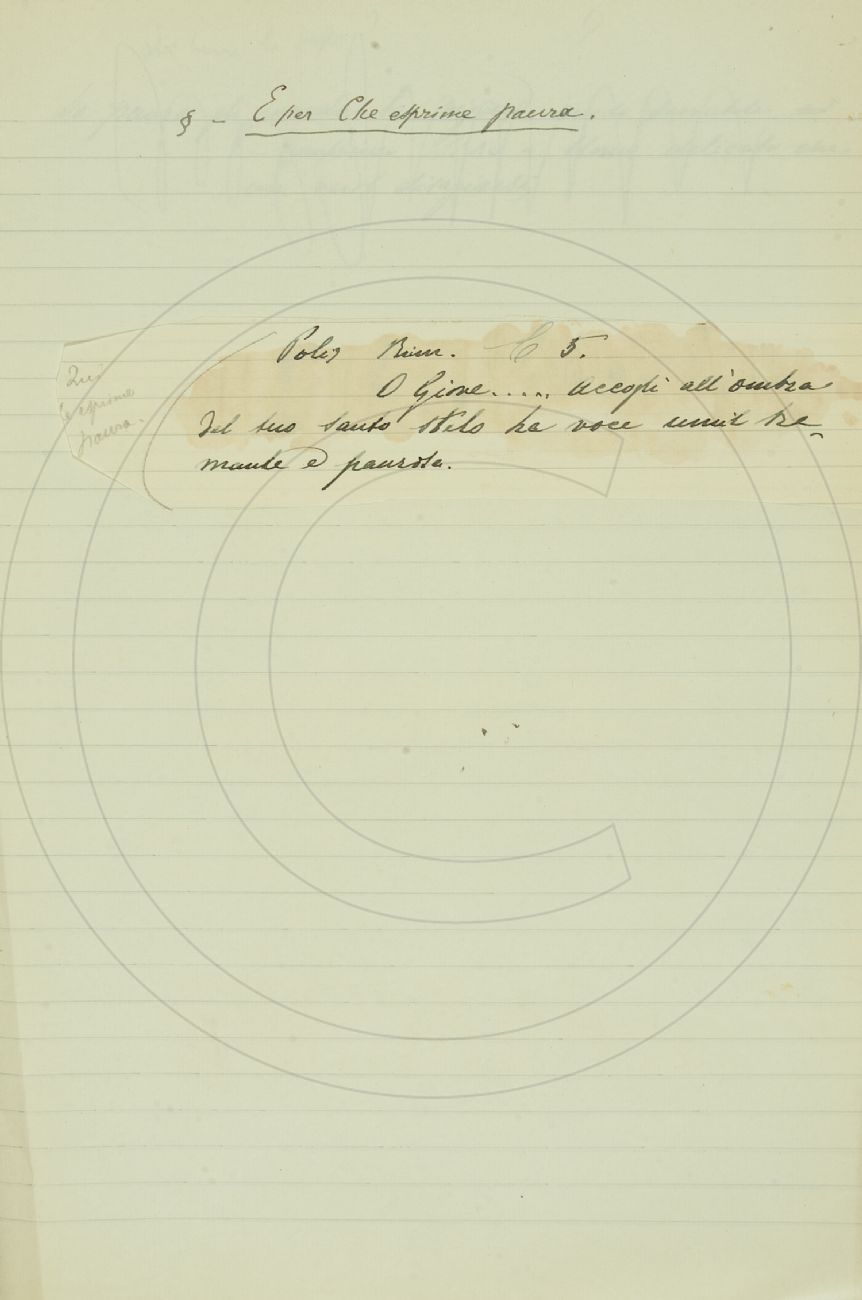 § - E per Che esprime paura.
Poliz Rim. C 5.
O Giove..... accogli all'ombra
del tuo santo stelo la voce umil tre-
mante e paurosa.
Qui
esprime
paura.